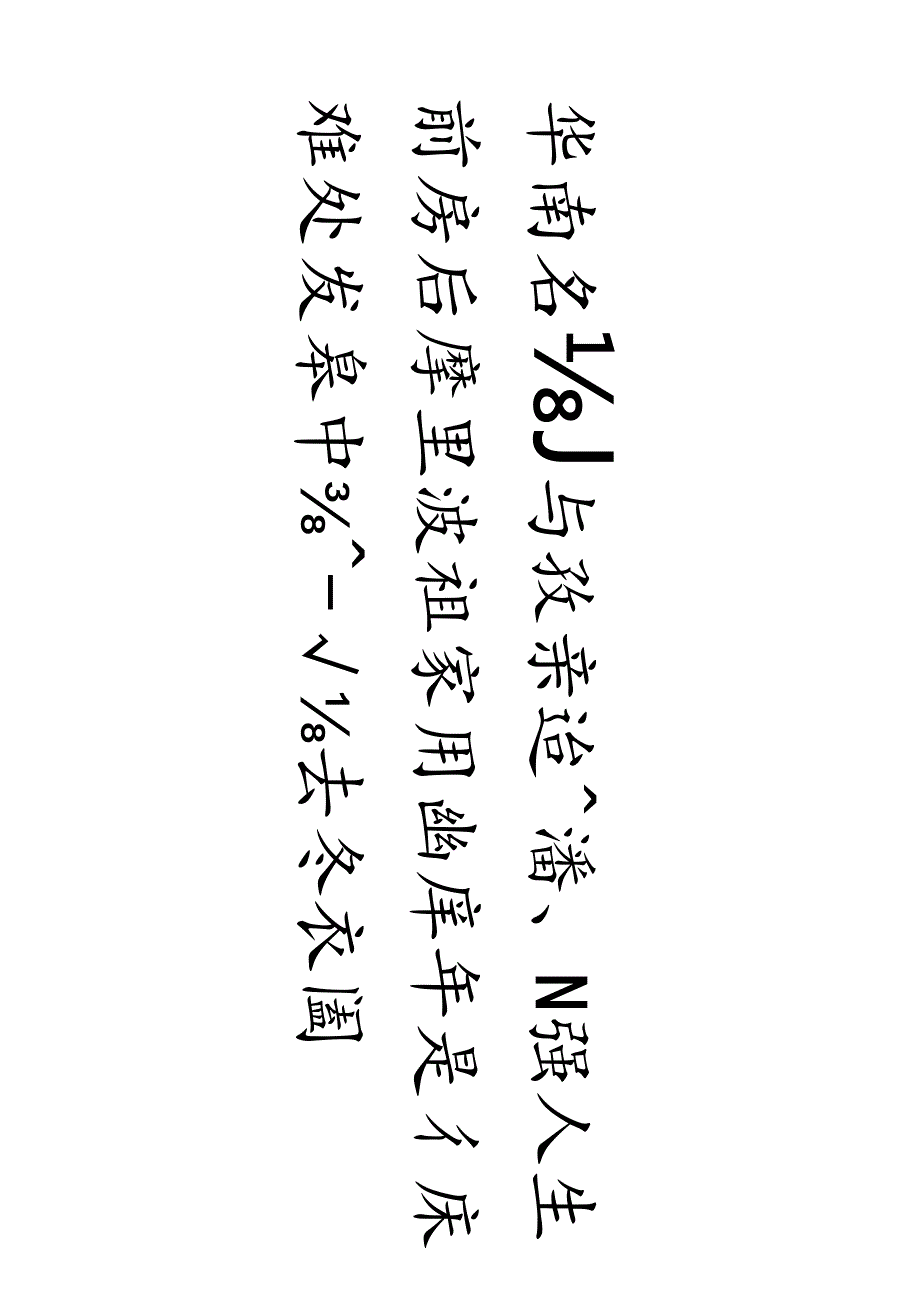 华南名⅛J与孜亲迨^潘、N强人生
前房后摩里波祖家用幽庠年是彳床
难处发皋中⅜^-√⅛去冬衣阖